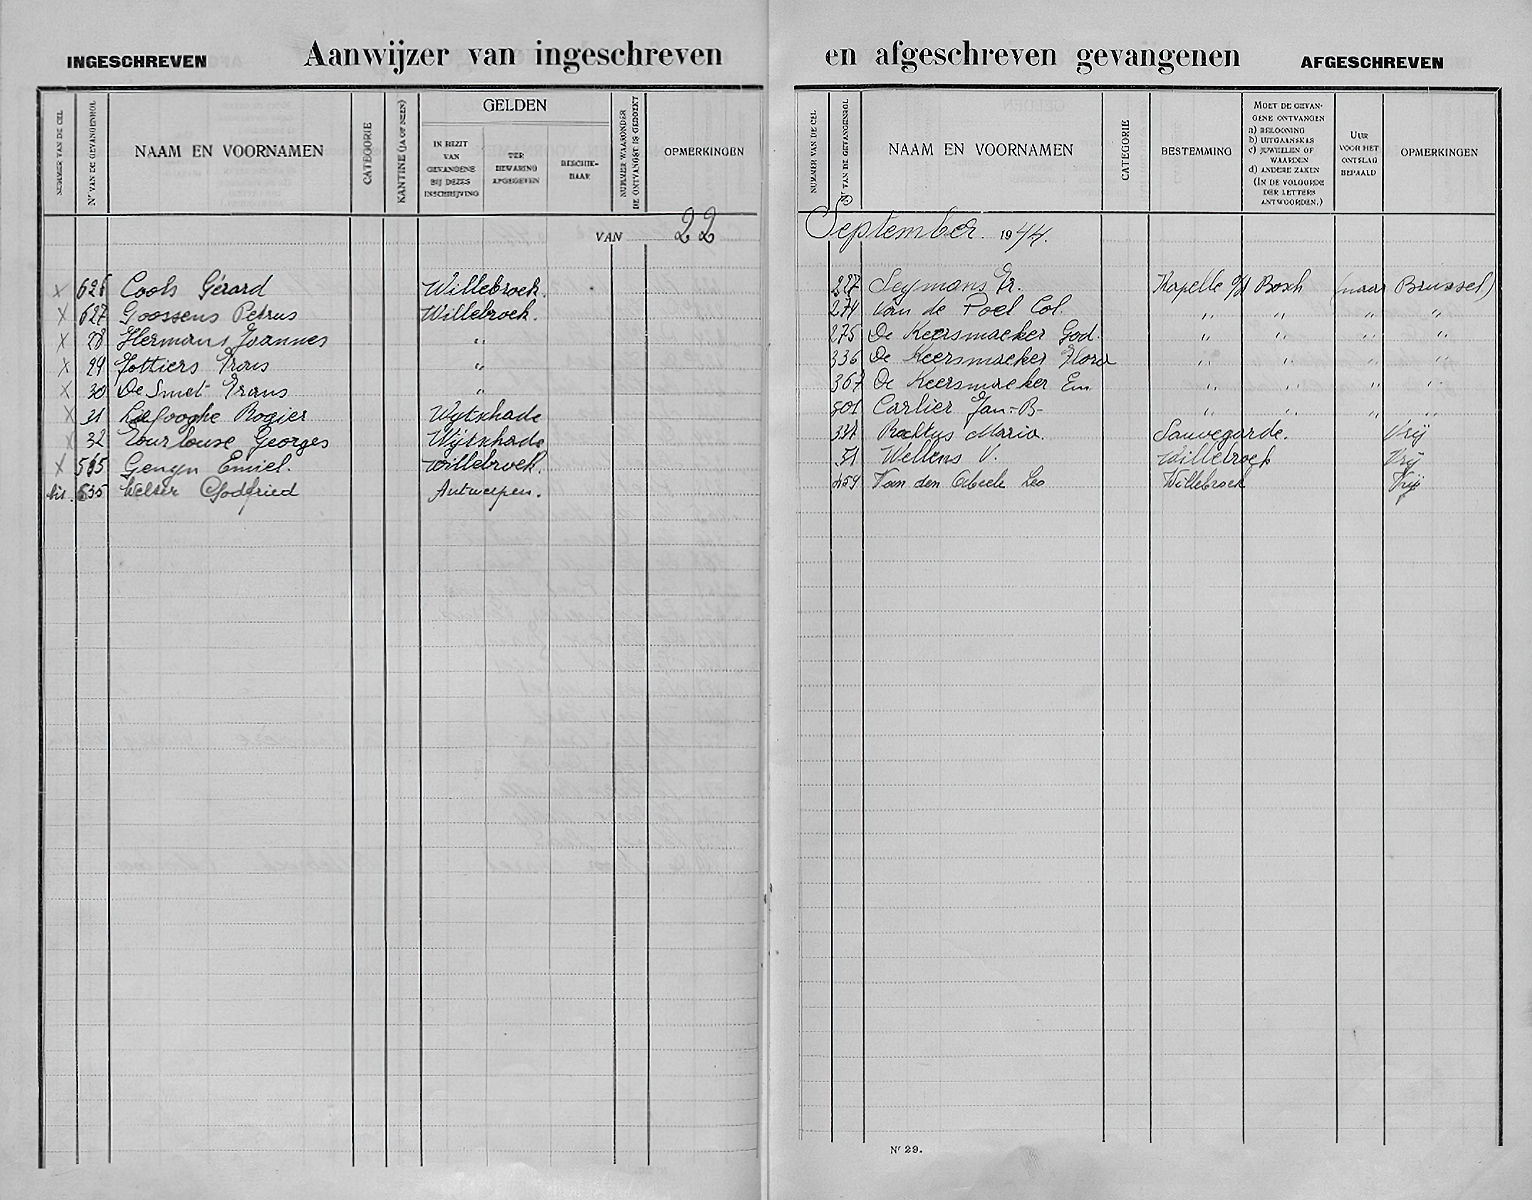 INGESCHREVEN
Aanwijzer van ingeschreven
NUMMER VAN DE CEL
Nr VAN DE GEVANGENROL
NAAM EN VOORNAMEN
CATEGORIE
KANTINE (JA OF NEEN)
GELDEN
IN BEZIT VAN GEVANGENE BIJ DEZES INSCHRIJVING
TER BEWARING AFGEGEVEN
BESCHIKBAAR
NUMMER WAARONDER DE ONTVANGST IS GEBOEKT
OPMERKINGEN
VAN 22
x 626 Cools Gérard Willebroek.
x 627 Goossens Petrus Willebroek.
x 28 Hermans Joannes "
x 29 Frans "
x 30 De Smet Frans "
x 31 Rogier Wytschade
x 32 Georges Wytschade
x 565 Genyn Emiel. Willebroek.
635 Godfried Antwerpen.
en afgeschreven gevangenen
AFGESCHREVEN
NUMMER VAN DE CEL
Nr VAN DE GEVANGENROL
NAAM EN VOORNAMEN
CATEGORIE
BESTEMMING
MOET DE GEVANGENE ONTVANGEN
a) BELOONING
b) UITGAANSKAS
c) JUWEELEN OF WAARDEN
d) ANDERE ZAKEN
(IN DE VOLGORDE DER LETTERS ANTWOORDEN.)
UUR VOOR HET ONTSLAG BEPAALD
OPMERKINGEN
September 1944.
227 Seymans Fr. Kapelle o/d Bosch (naar Brussel)
274 Van de Poel Col. " " " "
275 De Keersmaeker God. " " " "
336 De Keersmaeker Flora " " " "
367 De Keersmaeker Em " " " "
501 Carlier Jan-B- " " " "
Maria. Sauvegarde. Vrij
51 Wellens V. Willebroek Vrij
459 Van den Leo Willebroek Vrij
Nr 29.